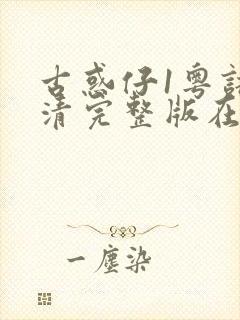 古惑仔1粤
清完整版在
一塵染